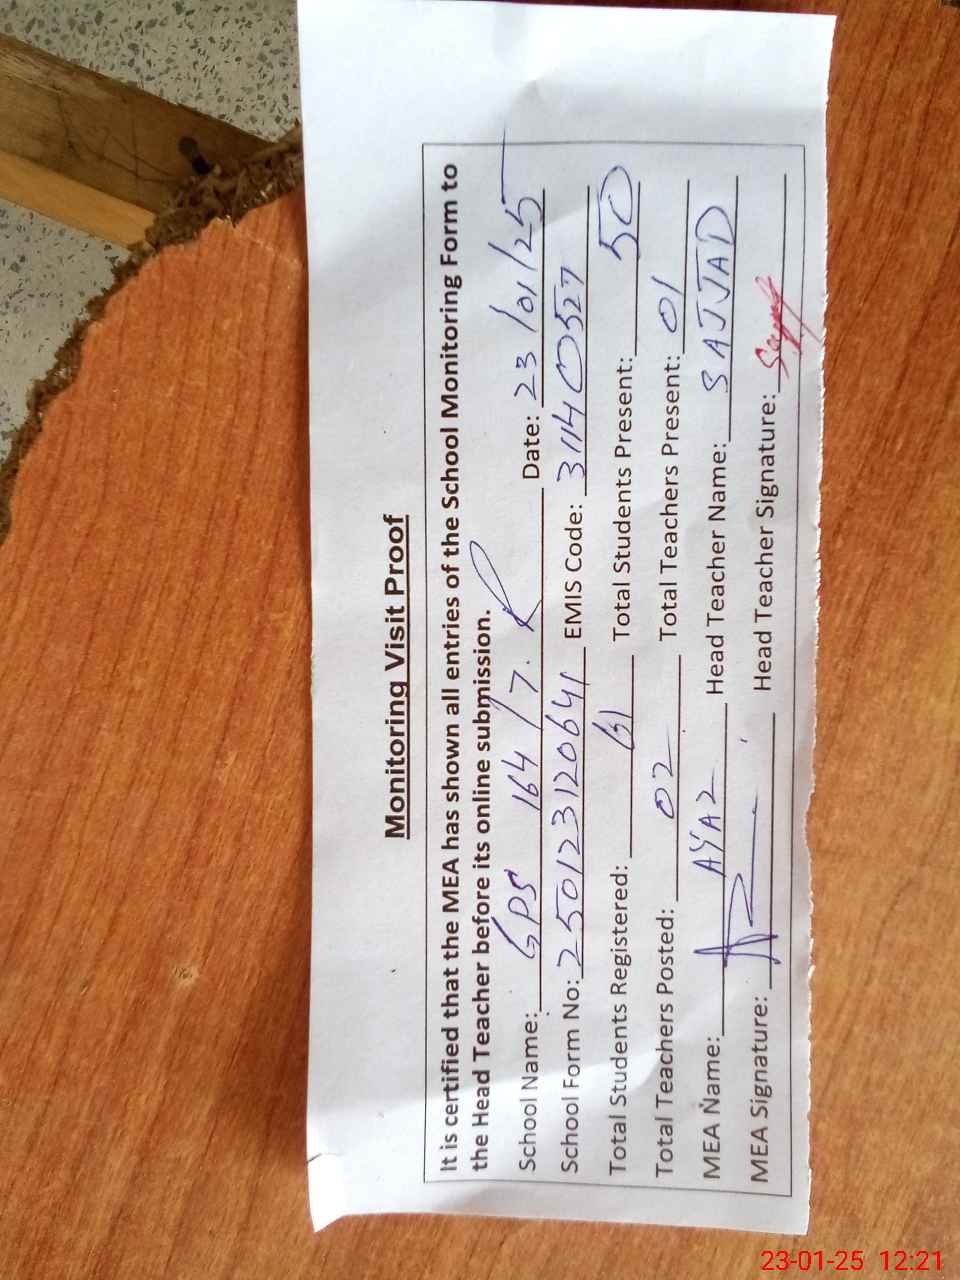 Monitoring Visit Proof
It is certified that the MEA has shown all entries of the School Monitoring Form to
the Head Teacher before its online submission.
School Name: GPS 164/7.R Date: 23/01/25
School Form No: 2501231120641 EMIS Code: 31140527
Total Students Registered: 61 Total Students Present: 50
Total Teachers Posted: 02 Total Teachers Present: 01
MEA Name: AYAZ Head Teacher Name: SAJJAD
MEA Signature: Head Teacher Signature:
23-01-25 12:21